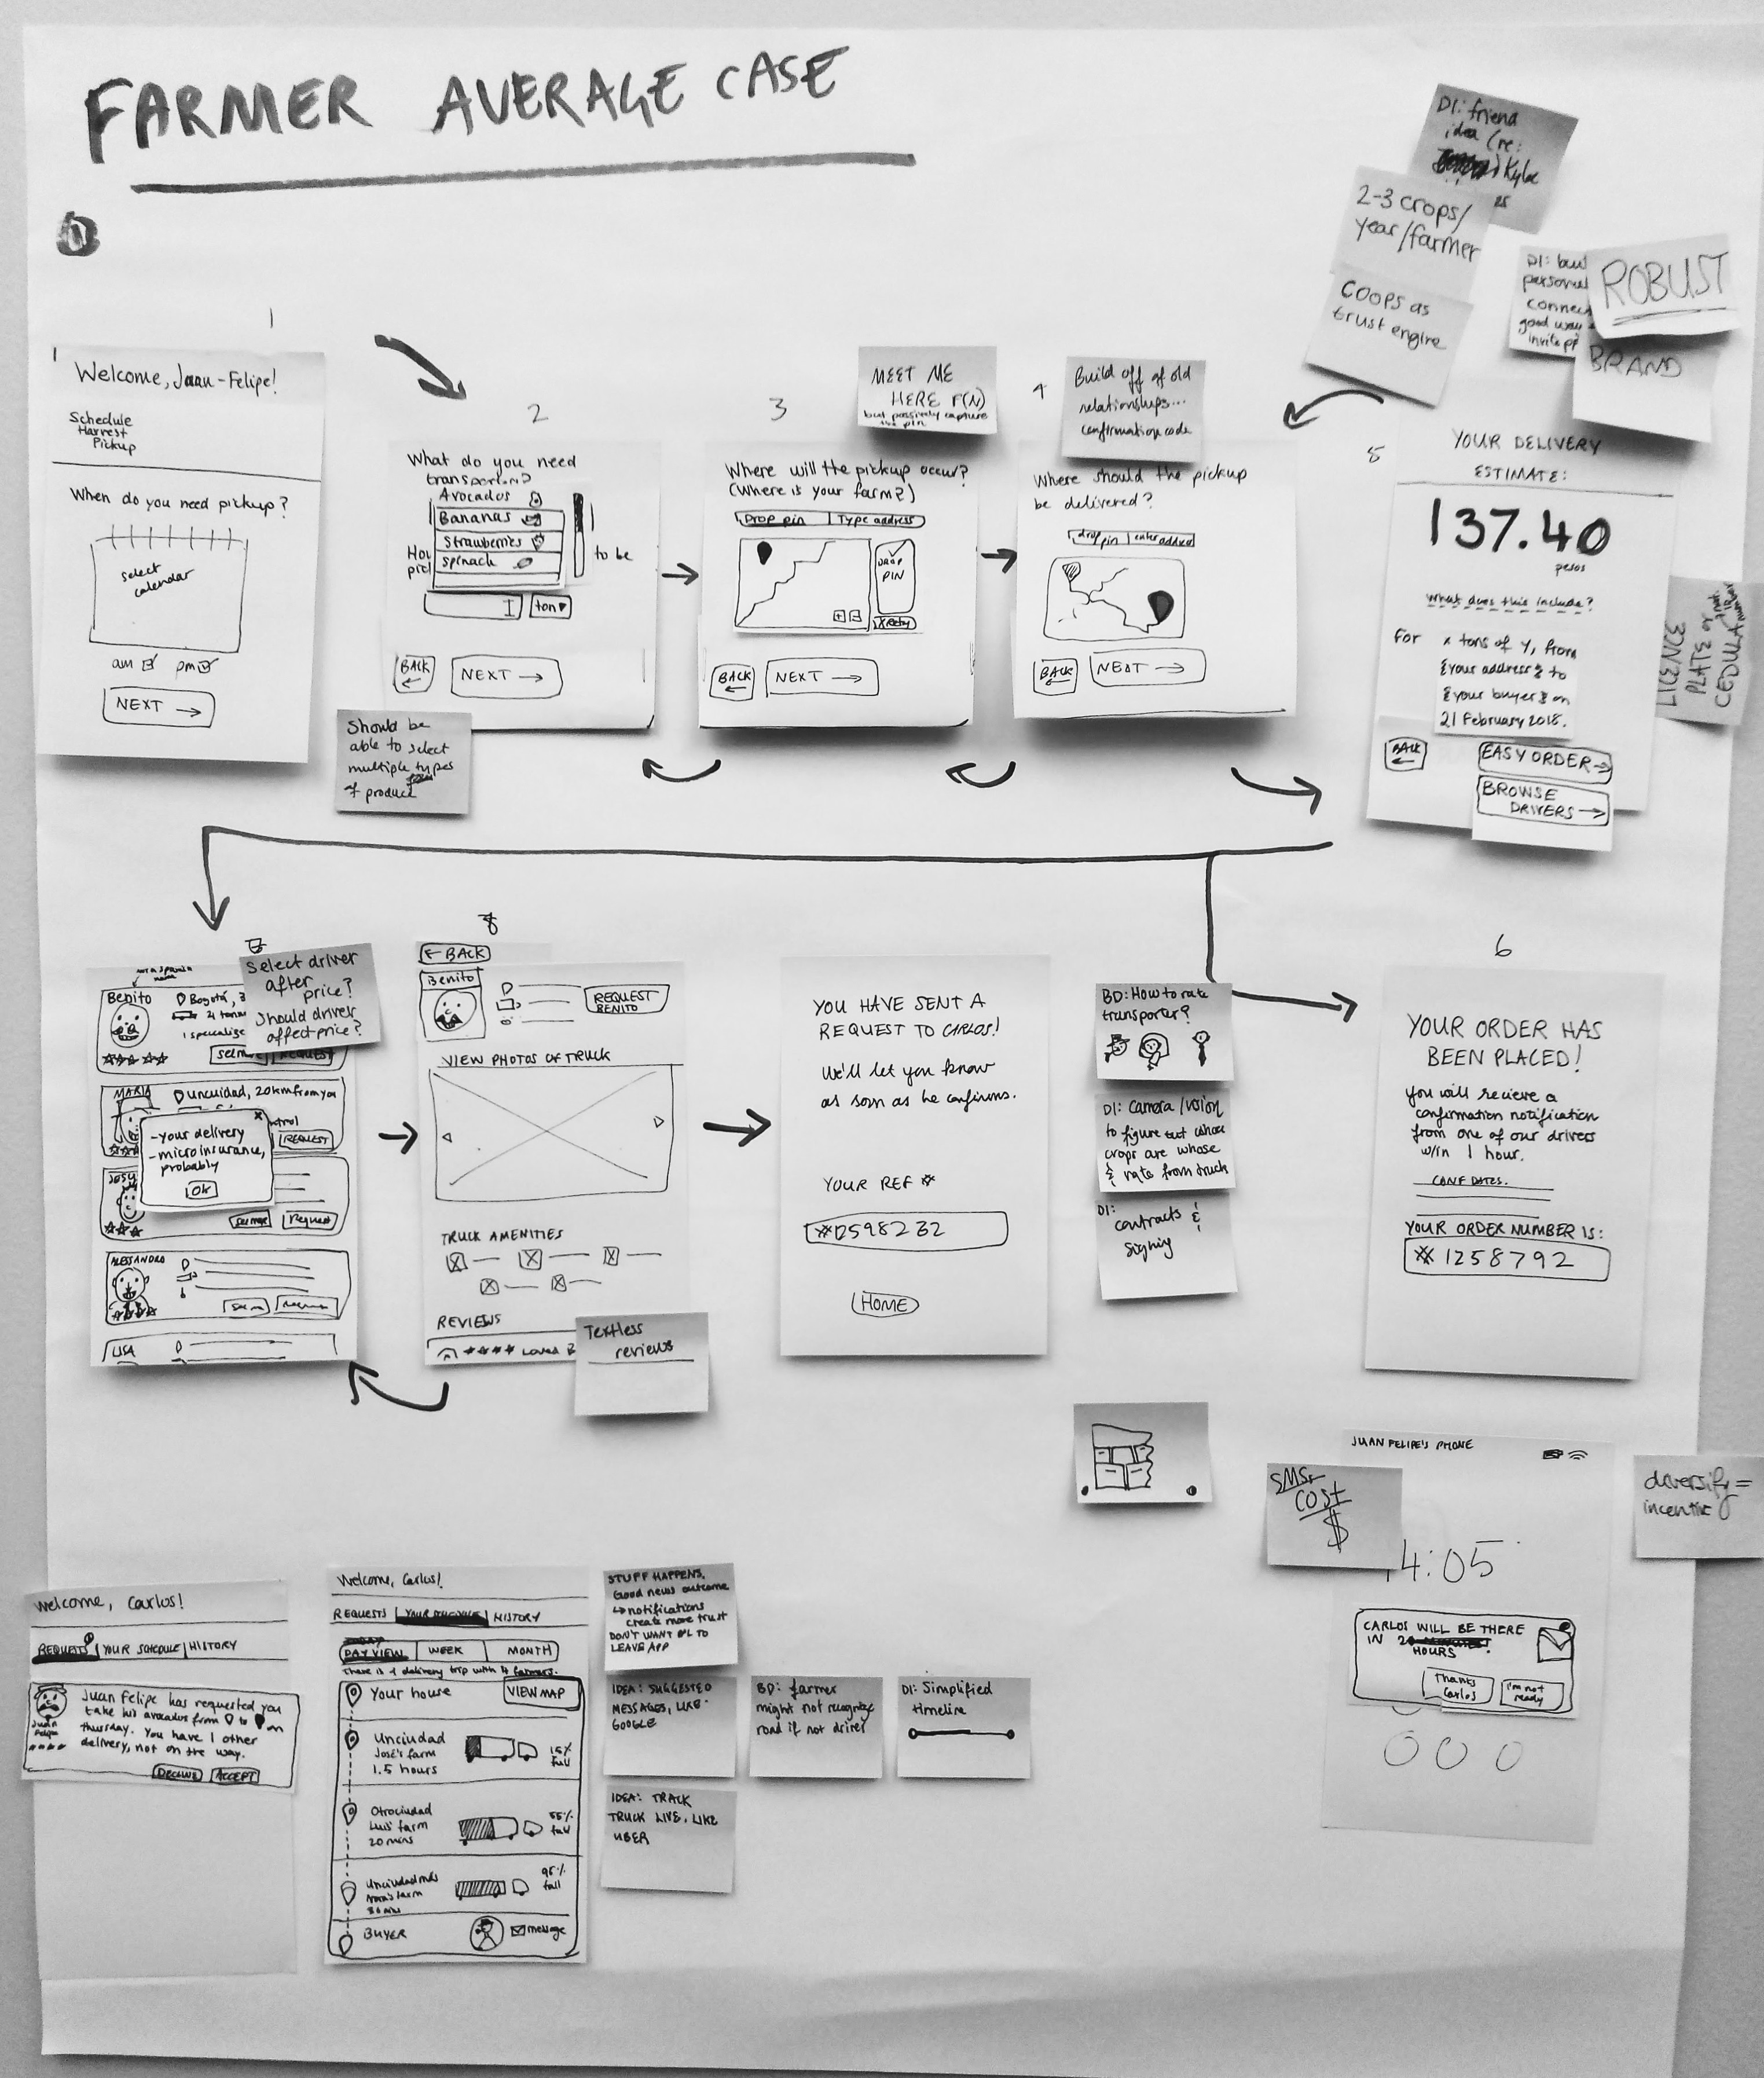 FARMER AVERAGE CASE
DI: friend
idea (re:
Kyle
2-3 crops/
year/farmer
COOPS as
trust engine
DI:
personal
connec
good way
invite pp
ROBUST
BRAND
1
1
Welcome, Juan-Felipe!
Schedule
Harvest
Pickup
When do you need pickup?
select
calendar
am
pm
NEXT →
2
What do you need
transported?
Avocados
Bananas
Strawberries
spinach
to be
ton
BACK
←
NEXT →
Should be
able to select
multiple types
of produce
3
MEET ME
HERE F(N)
but passively capture
the pin
Where will the pickup occur?
(Where is your farm?)
Drop pin | Type address
DROP
PIN
X Retry
BACK
←
NEXT →
4
Build off of old
relationships...
confirmation code
Where should the pickup
be delivered?
drop pin | enter address
BACK
←
NEXT →
5
YOUR DELIVERY
ESTIMATE:
137.40
pesos
What does this include?
For x tons of Y, from
{your address} to
{your buyer} on
21 February 2018.
BACK
←
EASY ORDER →
BROWSE
DRIVERS →
LICENCE
PLATE or
CEDULA
Select driver
after
price?
Should drivers
affect price?
Benito
Bogotá, 3
4 tons
I specialize
REQUEST
MARIA
unciudad, 20km from you
REQUEST
-your delivery
-microinsurance,
probably
Ok
Request
ALESSANDRO
LISA
8
← BACK
Benito
REQUEST
BENITO
VIEW PHOTOS OF TRUCK
TRUCK AMENITIES
REVIEWS
Loved
Textless
reviews
YOU HAVE SENT A
REQUEST TO CARLOS!
We'll let you know
as soon as he confirms.
YOUR REF #
#12598232
HOME
BD: How to rate
transporter?
DI: Camera/vision
to figure out whose
crops are whose
& rate from truck
DI:
contracts &
signing
6
YOUR ORDER HAS
BEEN PLACED!
You will recieve a
confirmation notification
from one of our drivers
w/in 1 hour.
YOUR ORDER NUMBER IS:
# 1258792
JUAN FELIPE'S PHONE
SMSr
COST
$
4:05
CARLOS WILL BE THERE
IN 2
HOURS
Thanks
Carlos
I'm not
ready
diversify =
incentive
Welcome, Carlos!
REQUESTS | YOUR SCHEDULE | HISTORY
Juan Felipe has requested you
take his avocados from to on
thursday. You have 1 other
delivery, not on the way.
Juan
Felipe
DECLINE
ACCEPT
Welcome, Carlos!
REQUESTS | YOUR SCHEDULE | HISTORY
DAY VIEW | WEEK | MONTH
There is 1 delivery trip with 4 farmers.
Your house
VIEW MAP
Unciudad
José's farm
1.5 hours
15%
full
Otrociudad
Luis' farm
20 mins
55%
full
Unciudad más
95%
full
BUYER
message
STUFF HAPPENS.
Good news outcome
↳ notifications
create more trust
DON'T WANT PPL TO
LEAVE APP
IDEA: SUGGESTED
MESSAGES, LIKE
GOOGLE
BD: farmer
might not recognize
road if not driver
DI: Simplified
timeline
IDEA: TRACK
TRUCK LIVE, LIKE
UBER